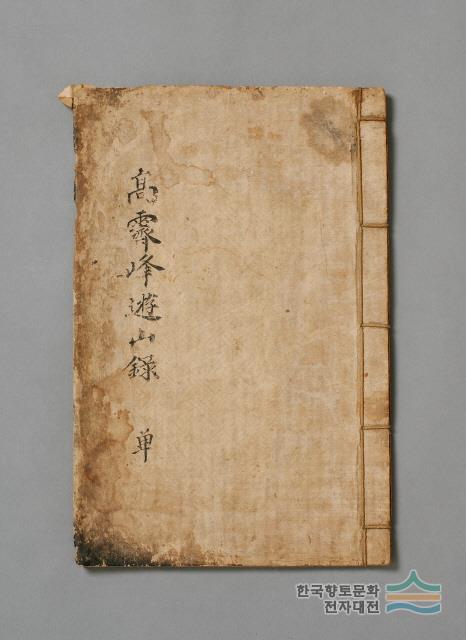 高霽峰遊山錄 單
한국향토문화
전자대전